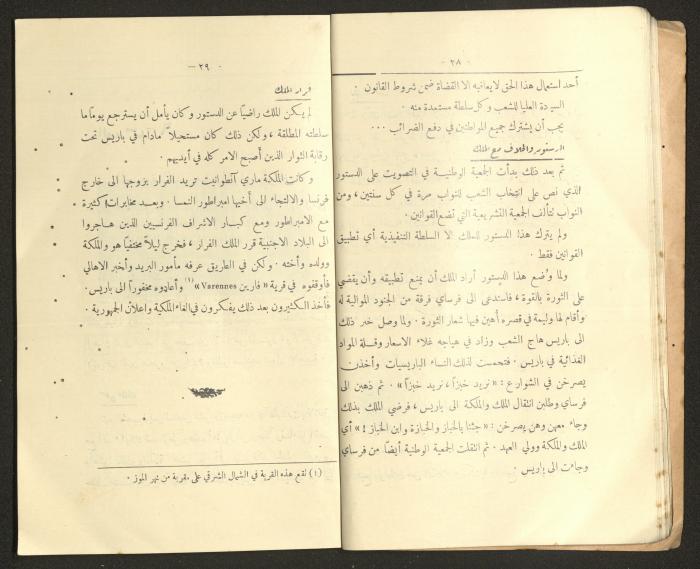 - ٢٨ -
أحد استعمال هذا الحق لا يعاقبه الا القضاة ضمن شروط القانون .
السيدة العليا للشعب وكل سلطة مستمدة منه .
يجب أن يشترك جميع المواطنين في دفع الضرائب ...
الدستور والخلاف مع الملك
ثم بعد ذلك بدأت الجمعية الوطنية في التصويت على الدستور
الذي نص على انتخاب الشعب للنواب مرة في كل سنتين ، ومن
النواب تتألف الجمعية التشريعية التي تضع القوانين .
ولم يترك هذا الدستور للملك الا السلطة التنفيذية أي تطبيق
القوانين فقط .
ولما وُضع هذا الدستور أراد الملك أن يمنع تطبيقه وأن يقضي
على الثورة بالقوة ، فاستدعى الى فرساي فرقة من الجنود الموالية له
وأقام لها وليمة في قصره أُهين فيها شعار الثورة . ولما وصل خبر ذلك
الى باريس هاج الشعب وزاد في هياجه غلاء الاسعار وقلة المواد
الغذائية في باريس . فتحمست لذلك النساء الباريسيات وأخذن
يصرخن في الشوارع : « نريد خبزاً ، نريد خبزاً » . ثم ذهبن الى
فرساي وطلبن انتقال الملك والملكة الى باريس ، فرضي الملك بذلك
وجاء معهن وهن يصرخن : « جئنا بالخباز والخبازة وابن الخباز ! » أي
الملك والملكة وولي العهد . ثم انتقلت الجمعية الوطنية أيضاً من فرساي
وجاءت الى باريس .
- ٢٩ -
فرار الملك
لم يكن الملك راضياً عن الدستور وكان يأمل أن يسترجع يوماً ما
سلطته المطلقة ، ولكن ذلك كان مستحيلاً مادام في باريس تحت
رقابة الثوار الذين أصبح الامر كله في أيديهم .
وكانت الملكة ماري آنطوانيت تريد الفرار بزوجها الى خارج
فرنسا والالتجاء الى أخيها امبراطور النمسا . وبعد مخابرات كثيرة
مع الامبراطور ومع كبار الاشراف الفرنسيين الذين هاجروا
الى البلاد الاجنبية قرر الملك الفرار ، فخرج ليلاً مختفياً هو والملكة
وولده وأخته . ولكن في الطريق عرفه مأمور البريد وأخبر الاهالي
فأوقفوه في قرية « فارين Varennes » (١) وأعادوه مخفوراً الى باريس .
فأخذ الكثيرون بعد ذلك يفكرون في الغاء الملكية واعلان الجمهورية .
(١) تقع هذه القرية في الشمال الشرقي على مقربة من نهر الموز .